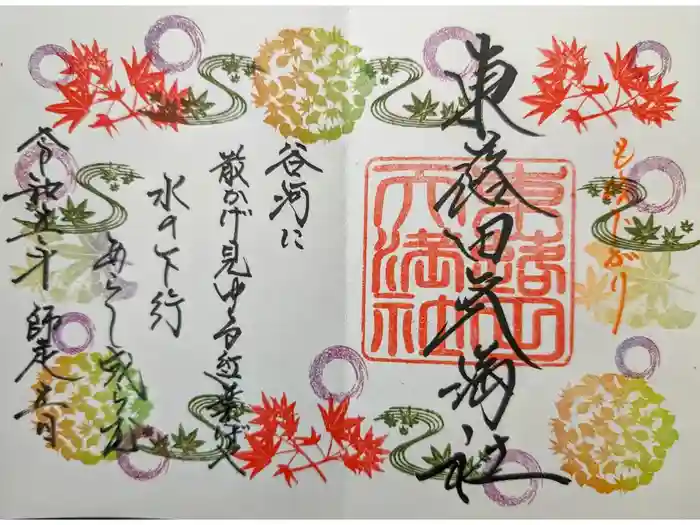 もみじがり
東蕗田天満社
東蕗田天満社
谷河に
散かげ見ゆる紅葉ばや
水の下行
あらし成らむ
令和五年 師走 五日